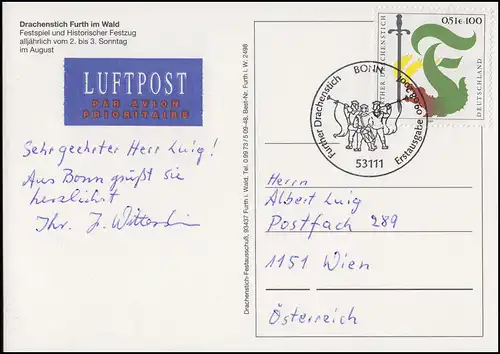 Drachenstich Furth im Wald
Festspiel und Historischer Festzug
alljährlich vom 2. bis 3. Sonntag
im August
LUFTPOST
PAR AVION
PRIORITAIRE
Sehr geehrter Herr Luig!
Aus Bonn grüßt sie
herzlichst
Ihr. J.
Drachenstich-Festausschuß, 93437 Furth i. Wald, Tel. 0 99 73 / 5 09-48, Best-Nr. Furth i. W. 2498
FURTHER DRACHENSTICH
0,51€ 100
DEUTSCHLAND
Further Drachenstich
BONN
Erstausgabe
53111
Herrn
Albert Luig
Postfach 289
1151 Wien
Österreich